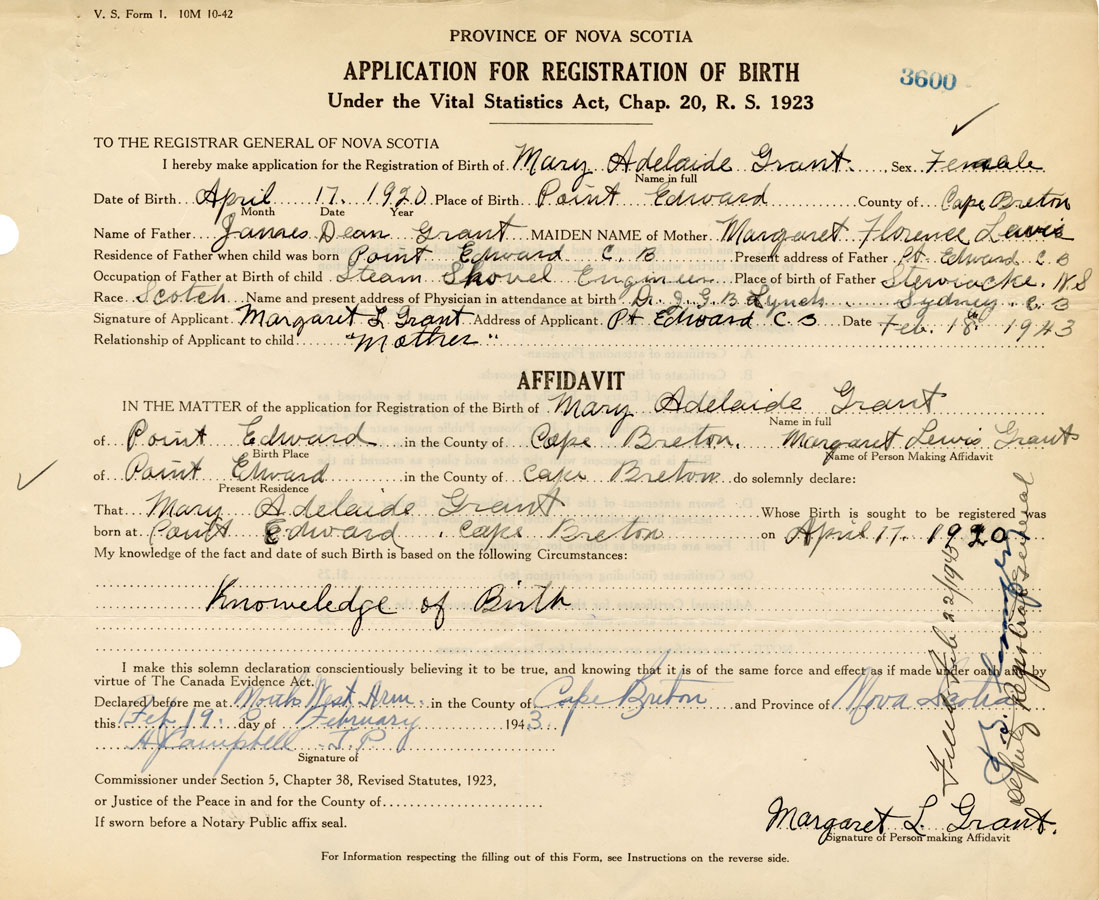 V. S. Form 1. 10M 10-42
PROVINCE OF NOVA SCOTIA
APPLICATION FOR REGISTRATION OF BIRTH
3600
Under the Vital Statistics Act, Chap. 20, R. S. 1923
TO THE REGISTRAR GENERAL OF NOVA SCOTIA
I hereby make application for the Registration of Birth of Mary Adelaide Grant Sex Female
Name in full
Date of Birth April 17. 1920 Place of Birth Point Edward County of Cape Breton
Month Date Year
Name of Father James Dean Grant MAIDEN NAME of Mother Margaret Florence Lewis
Residence of Father when child was born Point Edward C. B Present address of Father Pt. Edward C B
Occupation of Father at Birth of child Steam Shovel Engineer Place of birth of Father Stewiacke. N S
Race Scotch Name and present address of Physician in attendance at birth Dr. J. G. B Lynch Sydney. C B
Signature of Applicant Margaret L Grant Address of Applicant Pt Edward C B Date Feb. 18th 1943
Relationship of Applicant to child "Mother"
AFFIDAVIT
IN THE MATTER of the application for Registration of the Birth of Mary Adelaide Grant
Name in full
of Point Edward in the County of Cape Breton. Margaret Lewis Grant
Birth Place Name of Person Making Affidavit
of Point Edward in the County of Cape Breton do solemnly declare:
Present Residence
That Mary Adelaide Grant Whose Birth is sought to be registered was
born at Point Edward. Cape Breton on April 17. 1920
My knowledge of the fact and date of such Birth is based on the following Circumstances:
Knoweledge of Birth
I make this solemn declaration conscientiously believing it to be true, and knowing that it is of the same force and effect as if made under oath and by
virtue of The Canada Evidence Act.
Declared before me at North West Arm in the County of Cape Breton and Province of Nova Scotia
this Feb 19. day of February 1943.
H Campbell J. P
Signature of
Commissioner under Section 5, Chapter 38, Revised Statutes, 1923,
or Justice of the Peace in and for the County of
If sworn before a Notary Public affix seal.
Margaret L. Grant.
Signature of Person making Affidavit
For Information respecting the filling out of this Form, see Instructions on the reverse side.
Filed Feb 22/1943
Deputy Registrar General